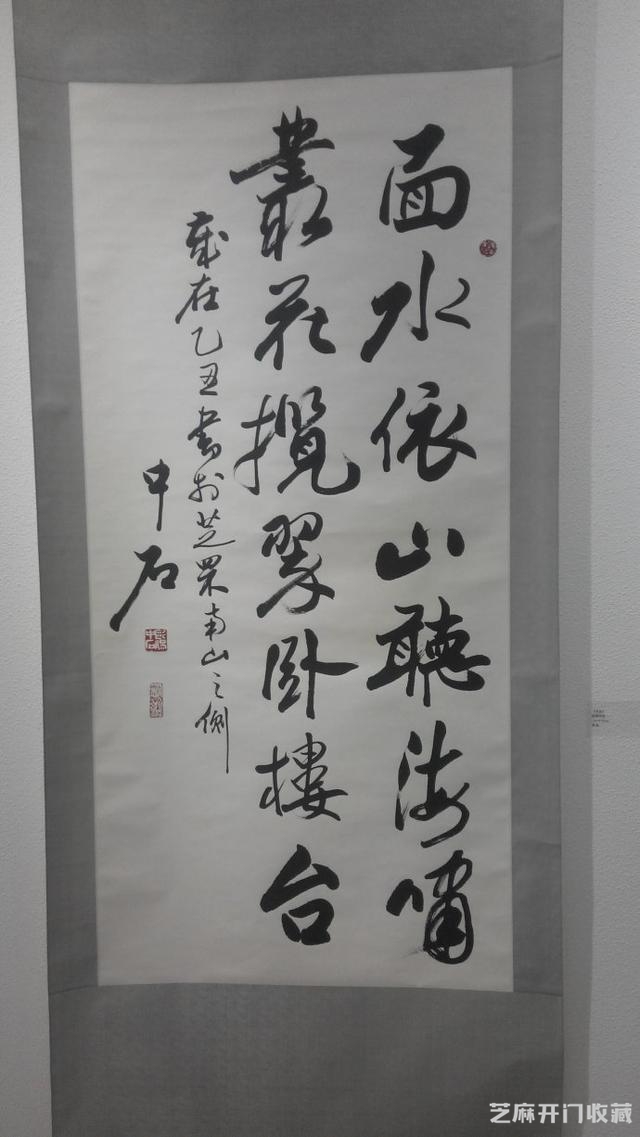 面水依山聽海嘯
叢花攬翠卧樓台
歲在乙丑書於芝罘南山之側
中石
芝麻开门收藏